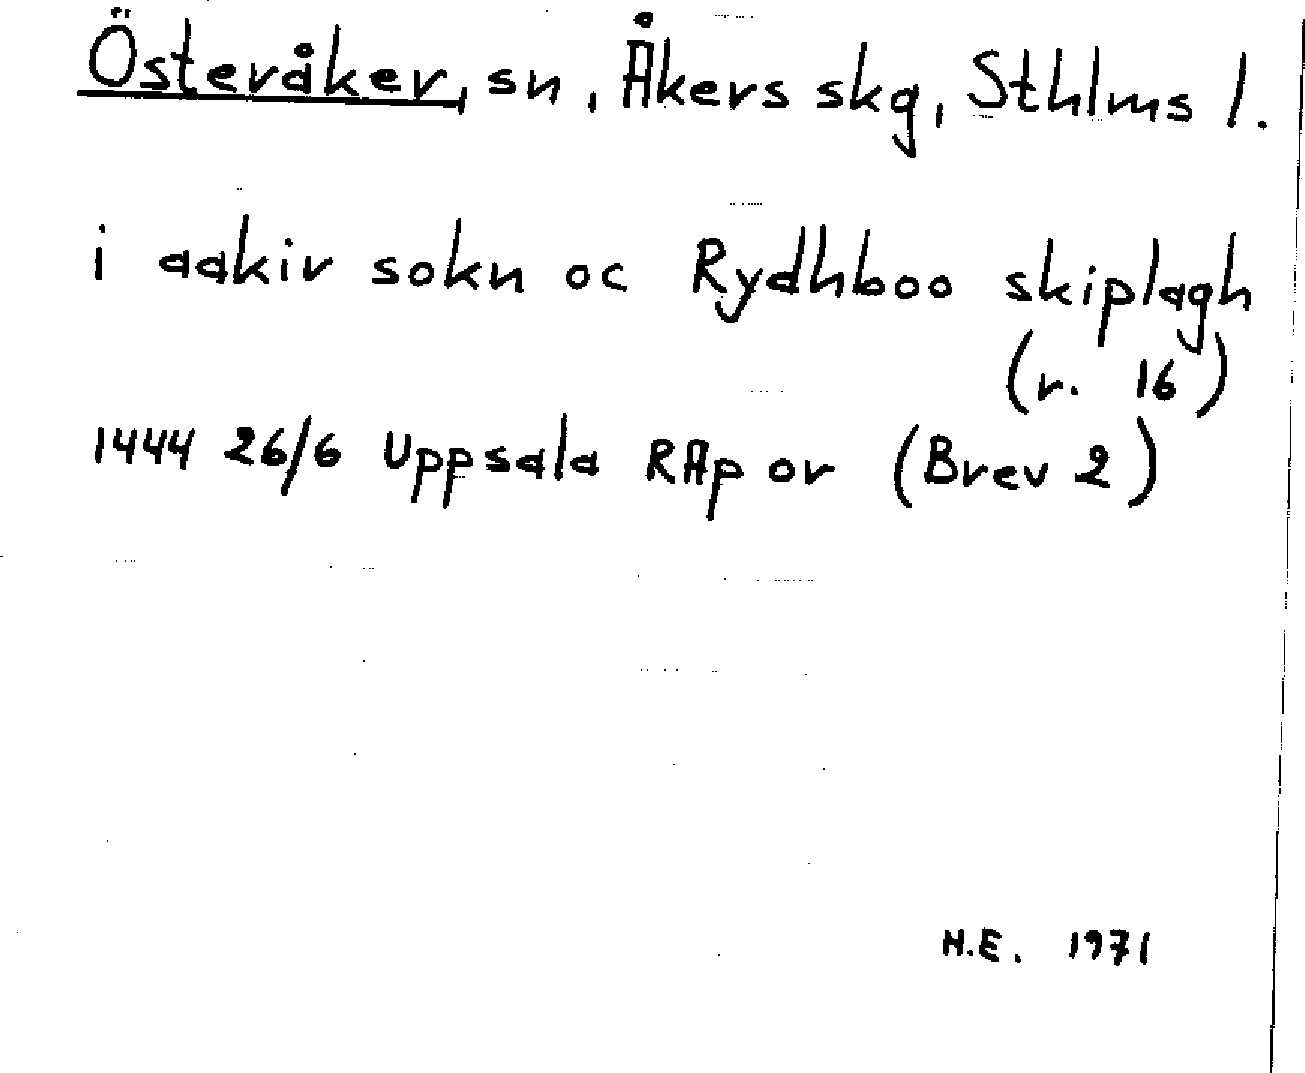 Österåker, sn, Åkers skg, Sthlms l.
i aakir sokn oc Rydhboo skiplagh
(r. 16)
1444 26/6 Uppsala RAp or (Brev 2)
H.E. 1971